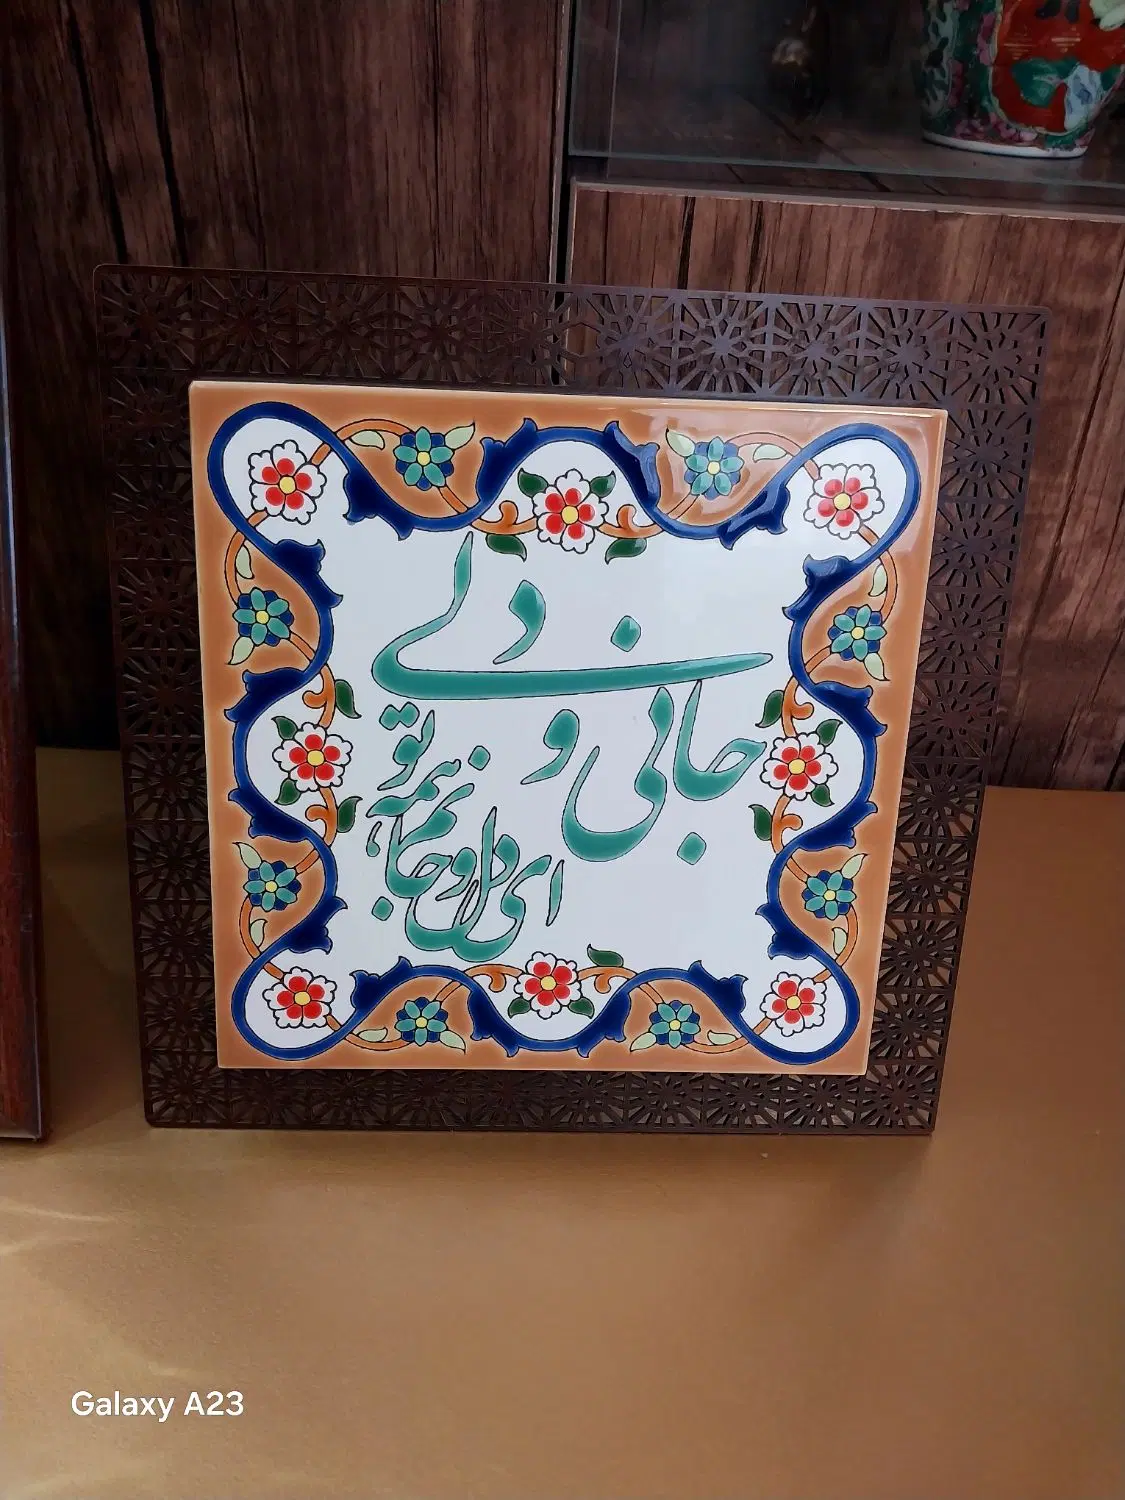 جانی و دلی
ای دل و جانم همه تو
Galaxy A23